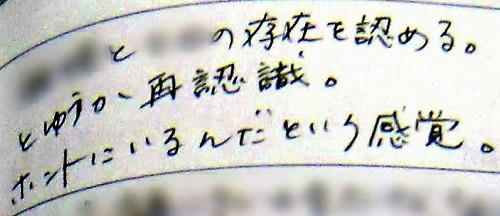 と の存在を認める。
とゆうか、再認識。
ホントにいるんだという感覚。